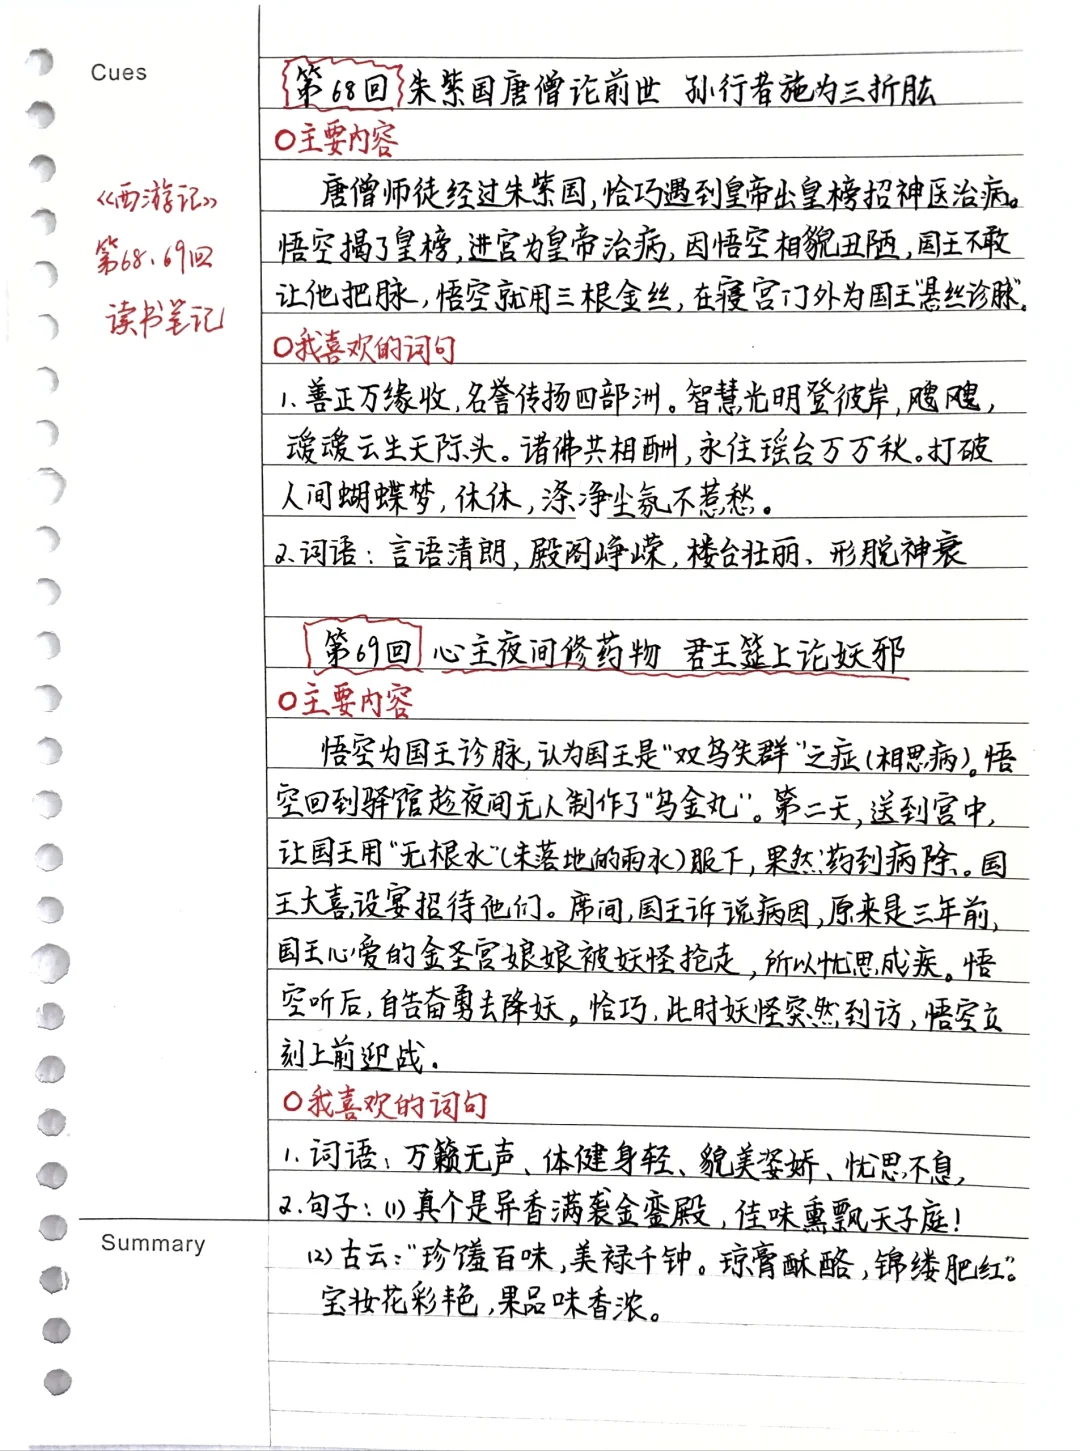 Cues
《西游记》
第68、69回
读书笔记
第68回 朱紫国唐僧论前世 孙行者施为三折肱
○主要内容
唐僧师徒经过朱紫国,恰巧遇到皇帝出皇榜招神医治病。
悟空揭了皇榜,进宫为皇帝治病,因悟空相貌丑陋,国王不敢
让他把脉,悟空就用三根金丝,在寝宫门外为国王"悬丝诊脉".
○我喜欢的词句
1、善正万缘收,名誉传扬四部洲。智慧光明登彼岸,飕飕,
叆叆云生天际头。诸佛共相酬,永住瑶台万万秋。打破
人间蝴蝶梦,休休,涤净尘氛不惹愁。
2.词语:言语清朗,殿阁峥嵘,楼台壮丽、形脱神衰
第69回 心主夜间修药物 君王筵上论妖邪
○主要内容
悟空为国王诊脉,认为国王是"双鸟失群"之症(相思病)。悟
空回到驿馆趁夜间无人制作了"乌金丸"。第二天,送到宫中,
让国王用"无根水"(未落地的雨水)服下,果然药到病除。国
王大喜,设宴招待他们。席间,国王诉说病因,原来是三年前,
国王心爱的金圣宫娘娘被妖怪抢走,所以忧思成疾。悟
空听后,自告奋勇去降妖。恰巧,此时妖怪突然到访,悟空立
刻上前迎战.
○我喜欢的词句
1、词语:万籁无声、体健身轻、貌美姿娇、忧思不息,
2.句子:(1)真个是异香满袭金銮殿,佳味熏飘天子庭!
(2)古云:"珍馐百味,美禄千钟。琼膏酥酪,锦缕肥红"。
宝妆花彩艳,果品味香浓。
Summary